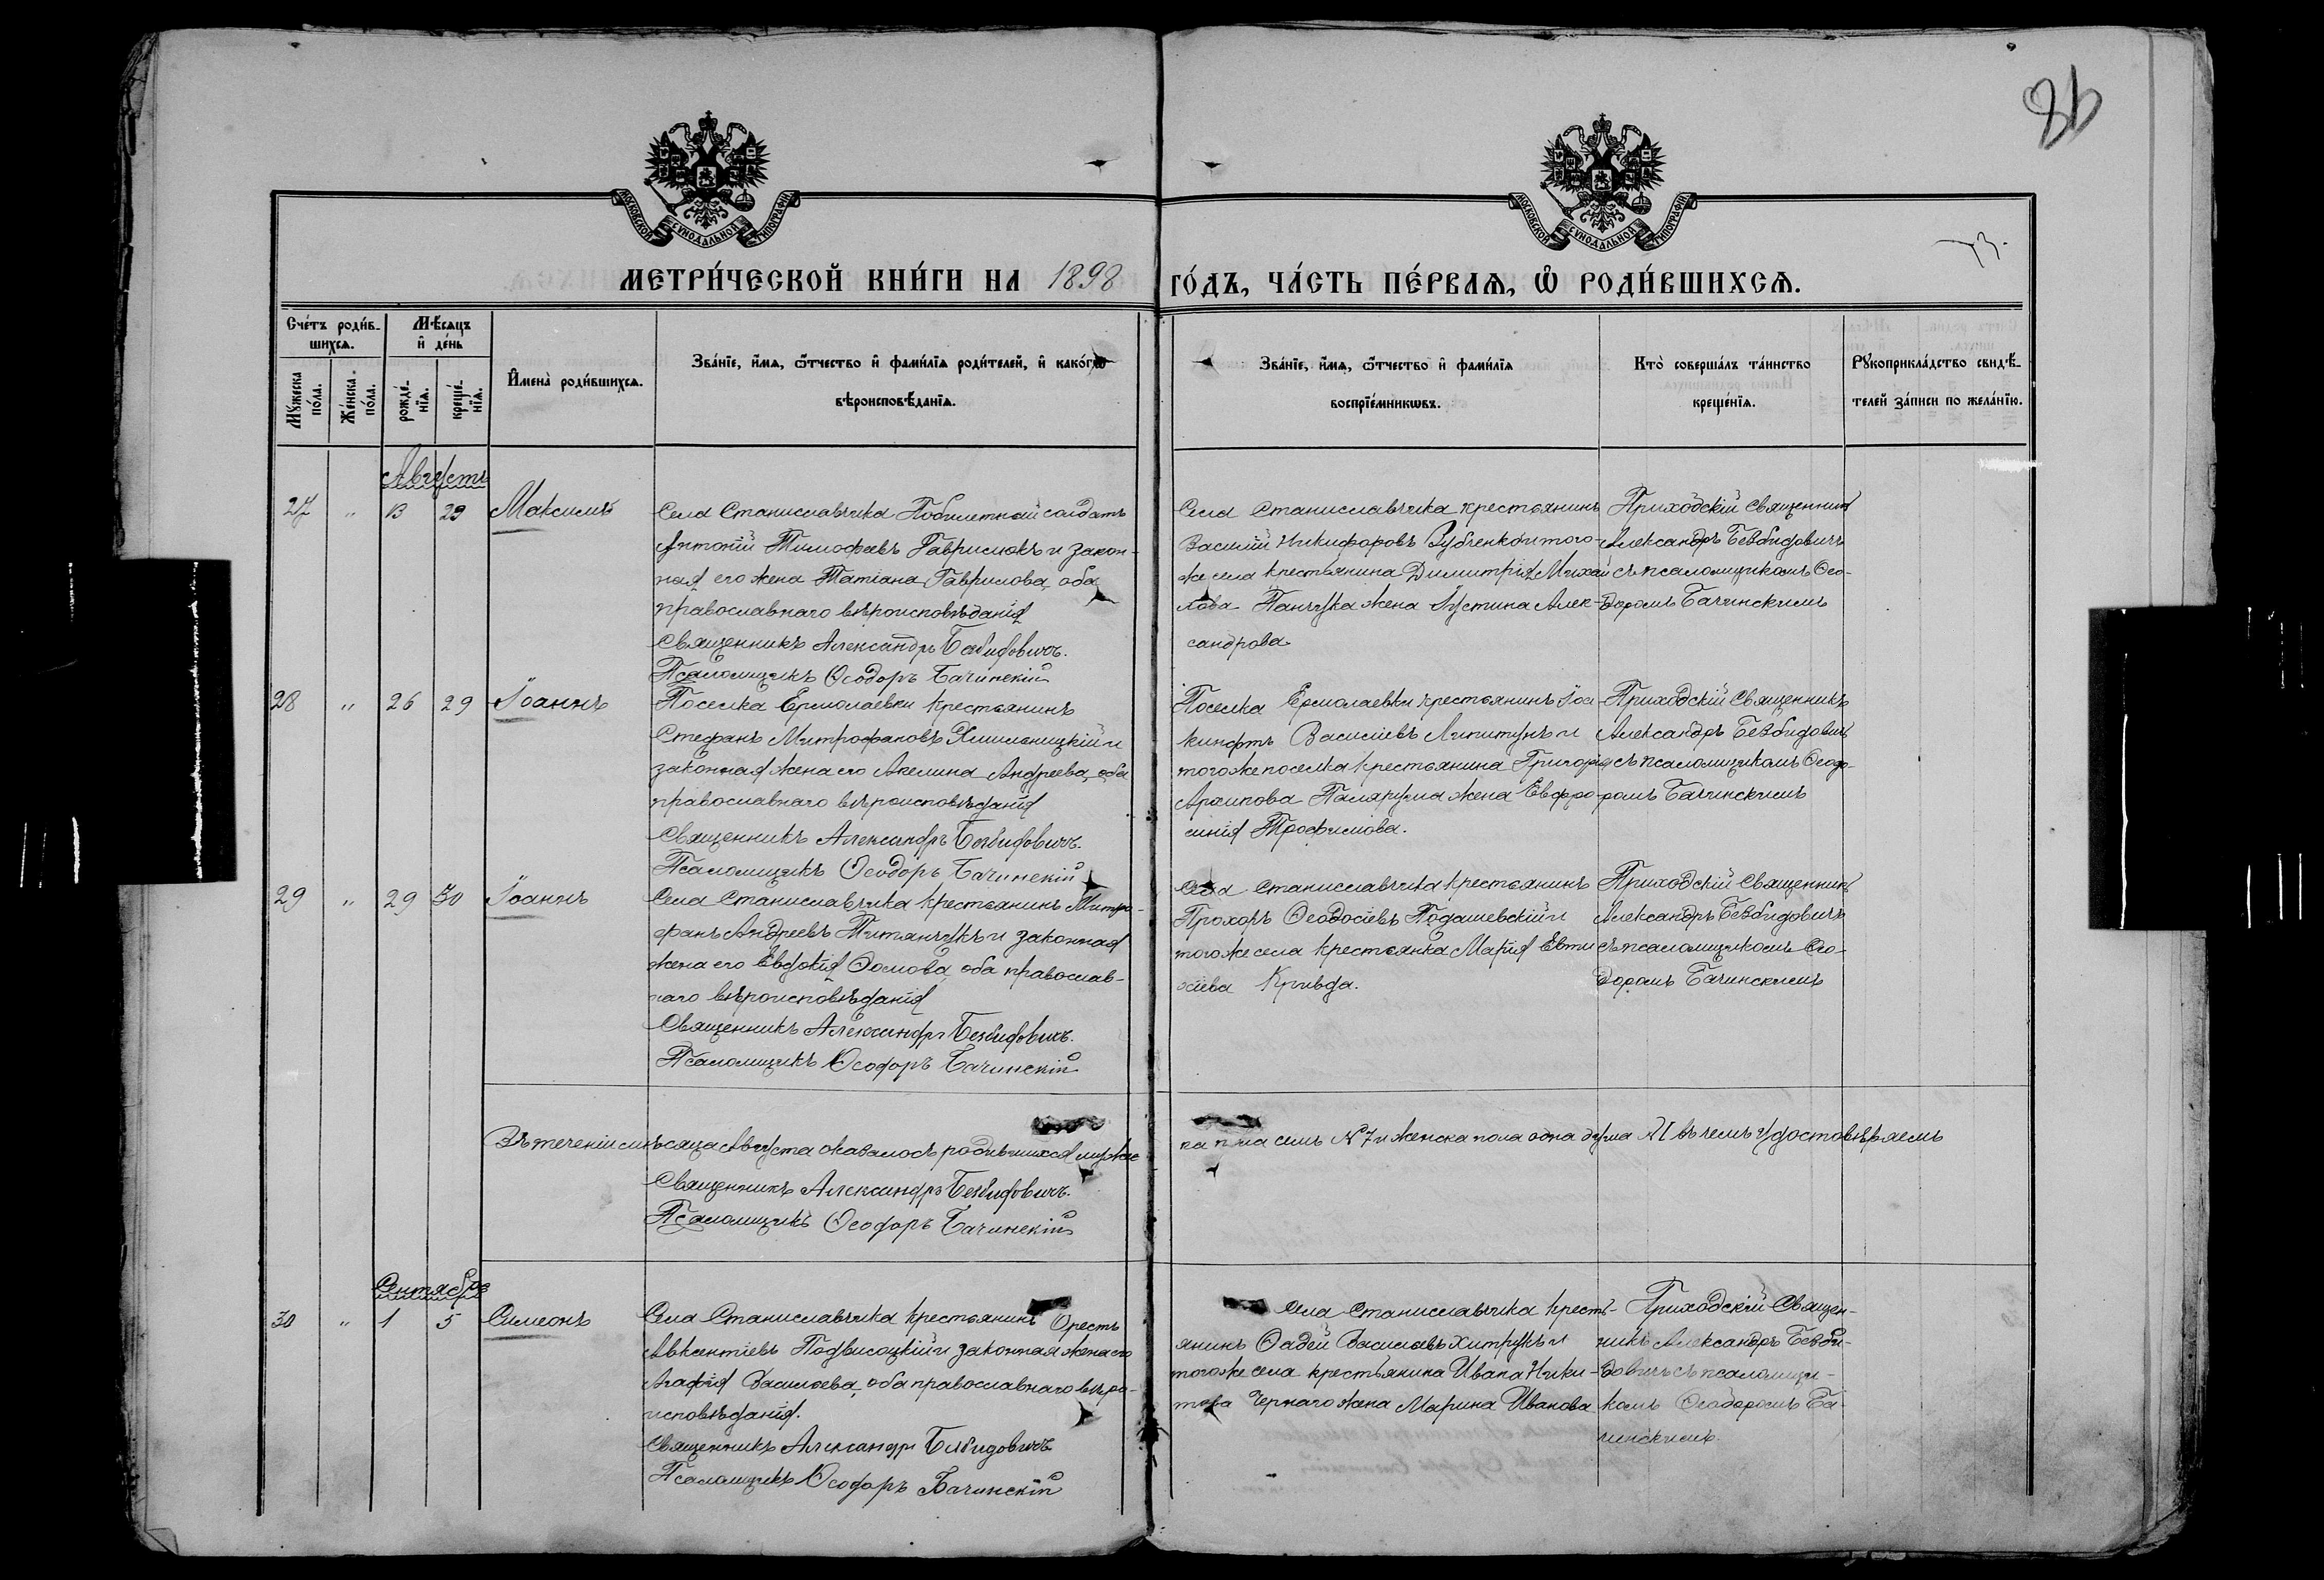 86
73.
МОСКОВСКОЙ СѴНОДАЛЬНОЙ ТИПОГРАФІИ
МОСКОВСКОЙ СѴНОДАЛЬНОЙ ТИПОГРАФІИ
МЕТРИ́ЧЕСКОЙ КНИ́ГИ НА 1898 ГО́ДЪ, ЧА́СТЬ ПЕ́РВАѦ, Ѡ҆ РОДИ́ВШИХСѦ.
Сче́тъ роди́в-
шихсѧ.
Мѣ́сѧцъ
и҆ де́нь
Мꙋжеска по́ла.
Же́нска по́ла.
рожде́-
нїѧ.
креще́-
нїѧ.
И҆мена̀ роди́вшихсѧ.
Зва́нїе, и҆́мѧ, ѻ҆́тчество и҆ фами́лїѧ роди́телей, и҆ како́гѡ
вѣроисповѣ́данїѧ.
Зва́нїе, и҆́мѧ, ѻ҆́тчество и҆ фами́лїѧ
воспрїе́мникѡвъ.
Кто̀ соверша́лъ та́инство
креще́нїѧ.
Рꙋкоприкла́дство свидѣ́-
телей за́писи по жела́нїю.
Августъ
27 " 13 29 Максимъ
Села Станиславчика Побилетный солдатъ
Антоній Тимофеевъ Гаврилюкъ и закон-
ная его жена Татіана Гаврилова, оба
православнаго вѣроисповѣданія
Священникъ Александръ Безвидовичъ.
Псаломщикъ Ѳеодоръ Бачинскій
Села Станиславчика крестьянинъ
Василій Никифоровъ Зубленко и того-
же села крестьянина Димитрія Михаи
лова Панчука жена Іустина Алек-
сандрова.
Приходскій Священникъ
Александръ Безвидовичъ
съ псаломщикомъ Ѳео-
доромъ Бачинскимъ
28 " 26 29 Іоаннъ
Поселка Ермолаевки крестьянинъ
Стефанъ Митрофановъ Хмильницкій и
законная жена его Акелина Андреева, оба
православнаго вѣроисповѣданія
Священникъ Александръ Безвидовичъ.
Псаломщикъ Ѳеодоръ Бачинскій
Поселка Ермолаевки крестьянинъ Іоа-
Василіевъ и
тогоже поселка крестьянина Григорія
Архипова жена Евфро-
синія Трофимова.
Приходскій Священникъ
Александръ Безвидовичъ
съ псаломщикомъ Ѳеодо-
ромъ Бачинскимъ
29 " 29 30 Іоаннъ
Села Станиславчика крестьянинъ Митро-
фанъ Андреевъ Титянчукъ и законная
жена его Евдокія Ѳомова, оба православ-
наго вѣроисповѣданія
Священникъ Александръ Безвидовичъ.
Псаломщикъ Ѳеодоръ Бачинскій
Села Станиславчика крестьянинъ
Прохоръ Ѳеодосіевъ Подашевскій и
тогоже села крестьянка Марія Евти
хіева Кривда.
Приходскій Священникъ
Александръ Безвидовичъ
съ псаломщикомъ Ѳео-
доромъ Бачинскимъ
Въ теченіи мѣсяца Августа оказалось родившихся мужес
ка пола семь №7 и женска пола одна душа №1 въ чемъ удостовѣряемъ
Священникъ Александръ Безвидовичъ.
Псаломщикъ Ѳеодоръ Бачинскій
Сентябрь
30 " 1 5 Симеонъ
Села Станиславчика крестьянинъ Орестъ
Авксентіевъ Подвисоцкій и законная жена его
Агафія Василіева, оба православнаго вѣро-
исповѣданія.
Священникъ Александръ Безвидовичъ
Псаломщикъ Ѳеодоръ Бачинскій
Села Станиславчика кресть-
янинъ Ѳадей Василіевъ Хитрукъ и
тогоже села крестьянина Ивана Ники-
това Чернаго жена Марина Иванова
Приходскій Священ-
никъ Александръ Безви-
довичъ съ псаломщи-
комъ Ѳеодоромъ Ба-
чинскимъ.